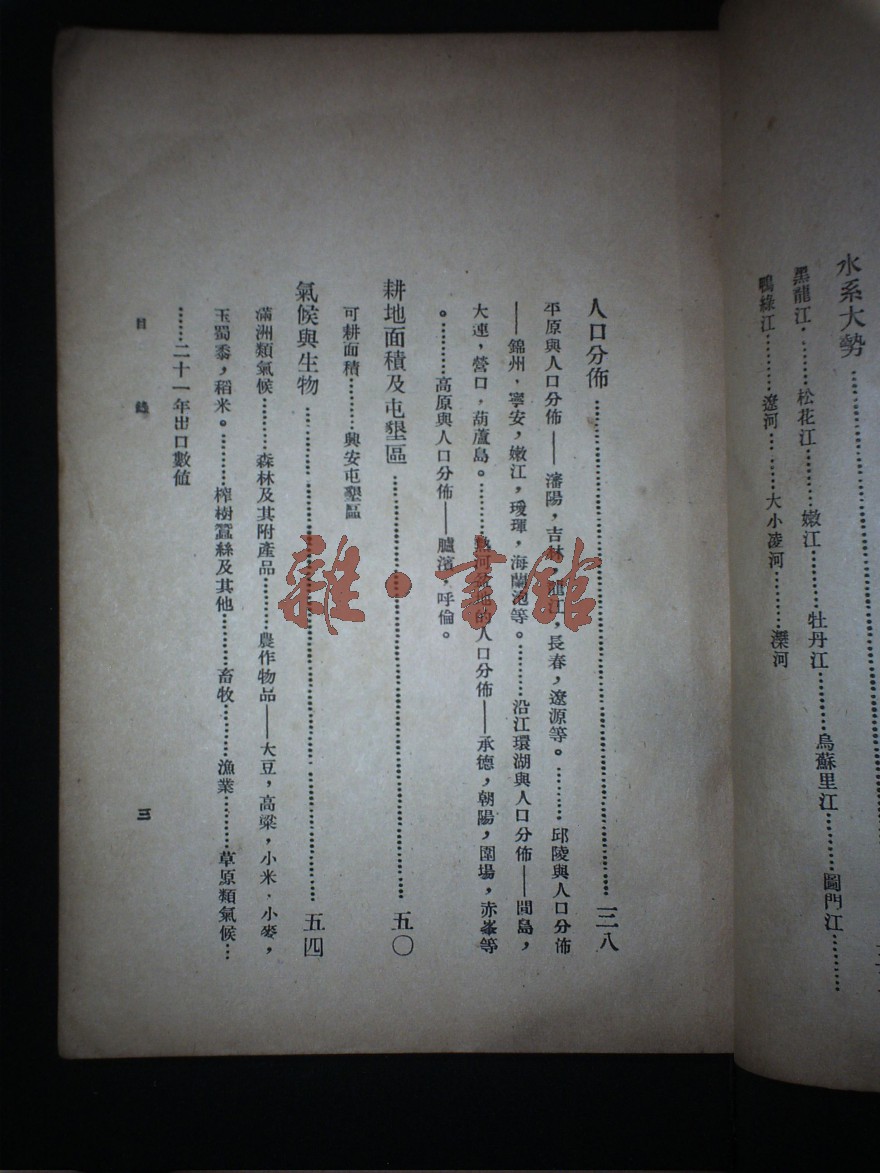 水系大勢…………
黑龍江………松花江………嫩江………牡丹江………烏蘇里江………圖門江………
鴨綠江………遼河………大小凌河………灤河
人口分佈…………三八
平原與人口分佈——瀋陽，吉林，龍江，長春，遼源等。………邱陵與人口分佈
——錦州，寧安，嫩江，璦琿，海蘭泡等。………沿江環湖與人口分佈——間島，
大連，營口，葫蘆島。………熱河盆地的人口分佈——承德，朝陽，圍場，赤峯等
。………高原與人口分佈——臚濱，呼倫。
耕地面積及屯墾區…………五〇
可耕面積………興安屯墾區
氣候與生物…………五四
滿洲類氣候………森林及其附產品………農作物品——大豆，高粱，小米，小麥，
玉蜀黍，稻米。………榨樹蠶絲及其他………畜牧………漁業………草原類氣候…
……二十一年出口數值
目錄　三
雜·書館